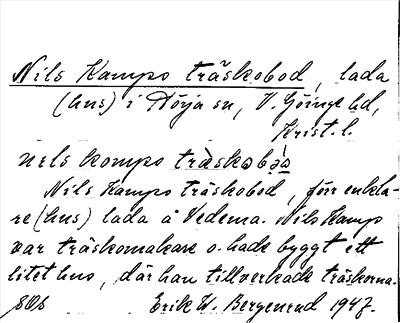 Nils Kamps träskobod, lada
(hus) i Hörja sn, V. Göinge hd,
Krist. l.
nils komps träskobo̤s
Nils Kamps träskobod, förr enkla-
re (hus) lada å Vedema. Nils Kamp
var träskomakare o. hade byggt ett
litet hus, där han tillverkade träskorna.
Erik W. Bergenrud 1947.